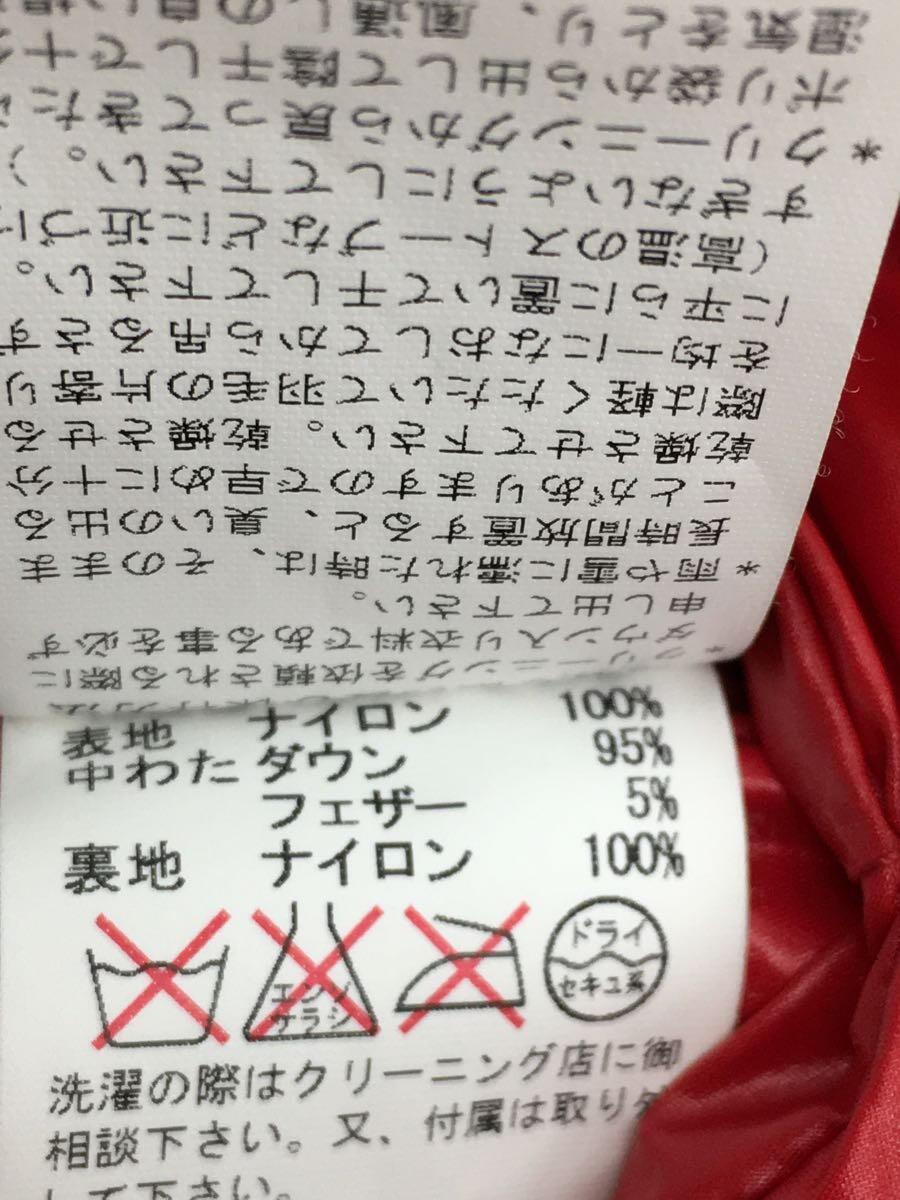 *クリーニングを依頼される際に
ダウン入り衣料である事を必ず
申し出て下さい。
*雨や雪に濡れた時は、そのまま
長時間放置すると、臭いの出る
ことがありますので早めに十分
乾燥させて下さい。乾燥させる
際は軽くたたいて羽毛の片寄り
を均一になおしてから吊るさず
に平らに置いて干して下さい。
(高温のストーブなどに近づけ
すぎないようにして下さい。)
*クリーニングから戻ってきたら
ポリ袋から出して陰干しで十分
湿気をとり、風通しの良い場
表地 ナイロン 100%
中わた ダウン 95%
フェザー 5%
裏地 ナイロン 100%
エンソ
サラシ
ドライ
セキユ系
洗濯の際はクリーニング店に御
相談下さい。又、付属は取り外
して下さい。